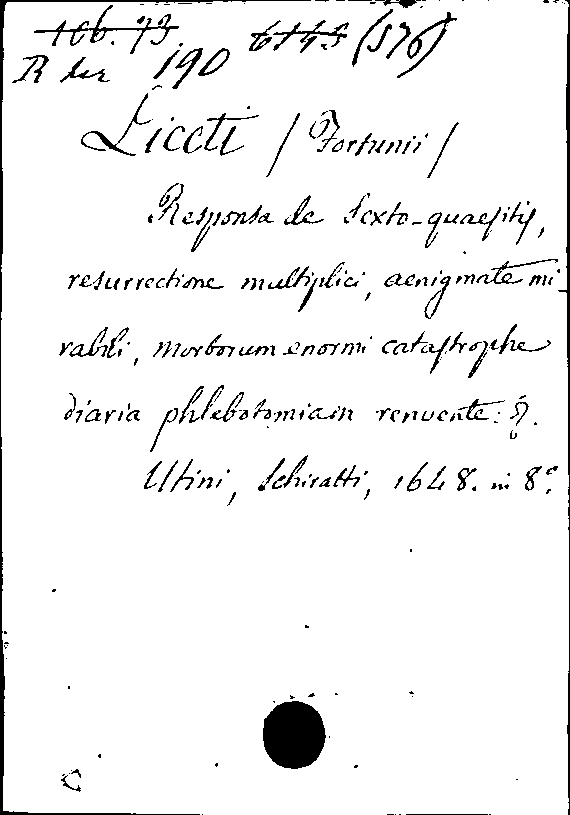 106. 73. 6143 (576)
R ler 190
Liceti / Fortunii /
Responsa de Sexto-quaesitis,
resurrectione multiplici, aenigmate mi-
rabili, morborum enormi catastrophe
diaria phlebotomiam renuente:
Utini, Schiratti, 1648. in 8°.